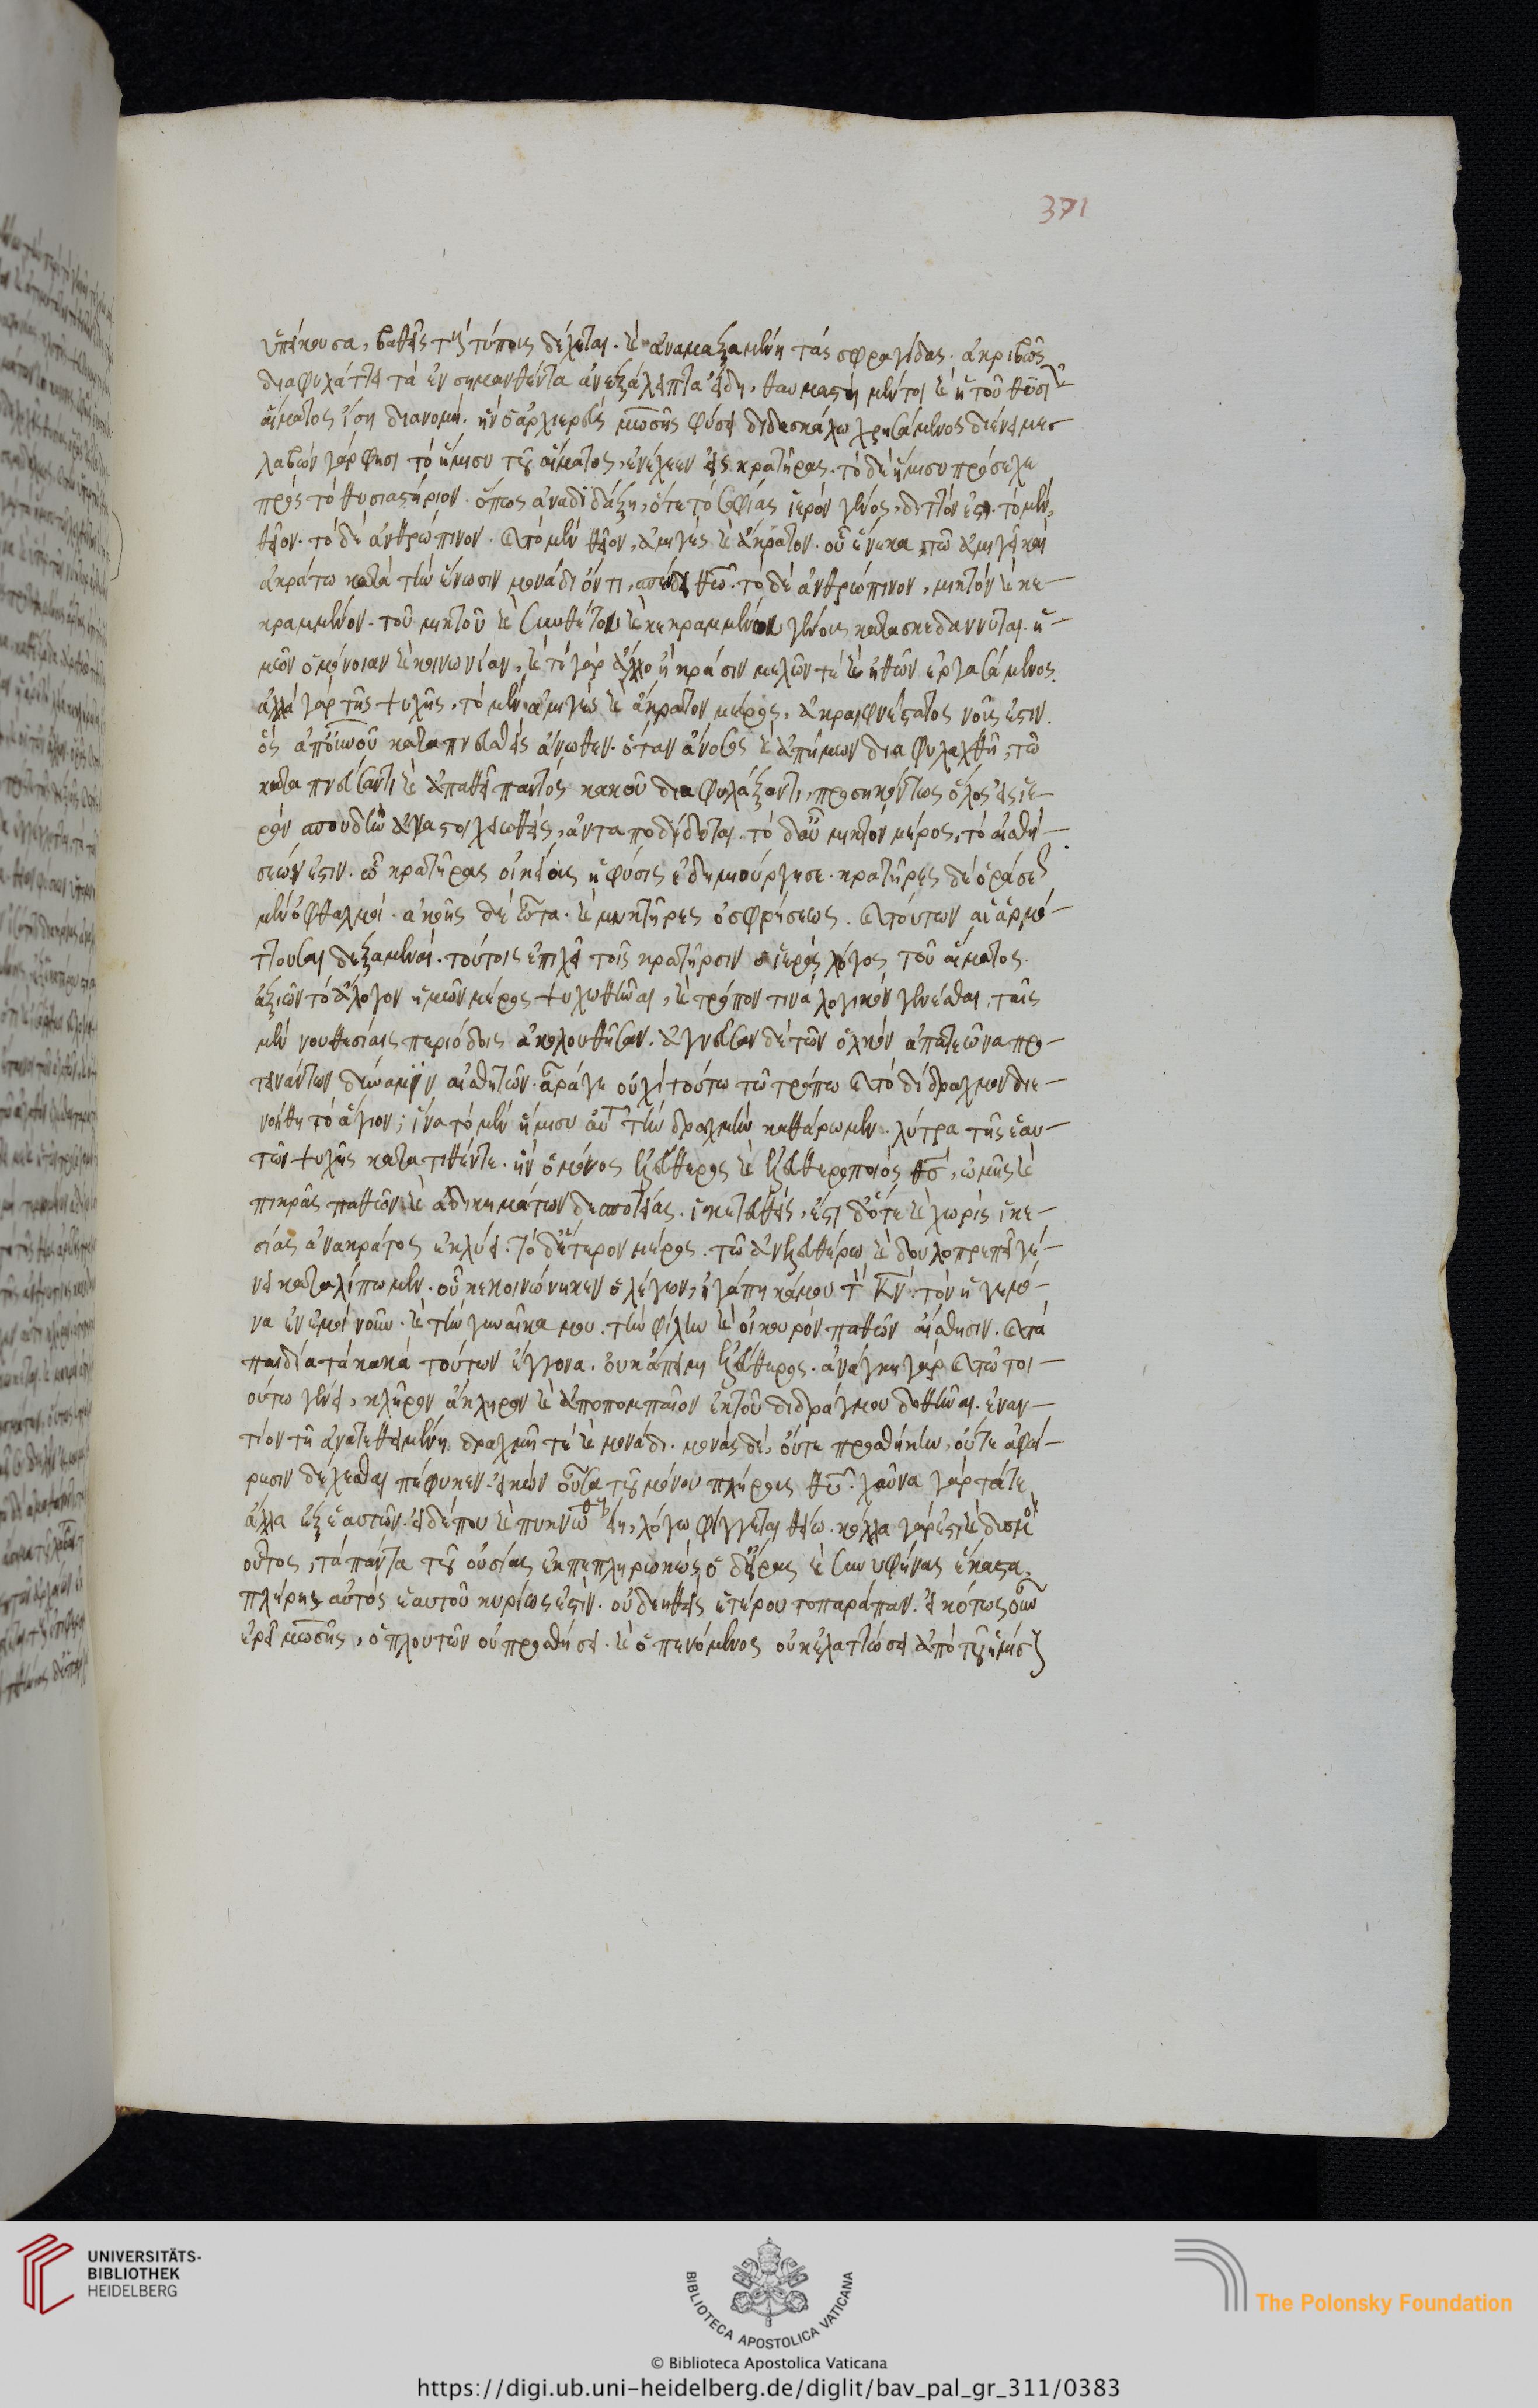 ὑπείκουσα, βαθεῖς τοὺς τύπους δέχεται. καὶ ἀναμαξαμένη τὰς σφραγίδας. ἀκριβῶς
διαφυλάττει τὰ ἐν σημανθέντα ἀνεξάλειπτα εἴδη. θαυμαστὴ μέντοι καὶ ἡ τοῦ
αἵματος ἴση διανομή. ἣν ὁ ἀρχιερεὺς μωσῆς φύσει διδασκάλω χρησάμενος διένειμε
λαβὼν γάρ φησι τὸ ἥμισυ τοῦ αἵματος, ἐνέχεεν εἰς κρατῆρας. τὸ δὲ ἥμισυ προσέχεε
πρὸς τὸ θυσιαστήριον. ὅπως ἀναδιδάξη, ὅτι τὸ σοφίας ἱερὸν γένος, διττόν ἐστι. τὸ μὲν,
θεῖον. τὸ δὲ ἀνθρώπινον. καὶ τὸ μὲν θεῖον, ἀμιγὲς καὶ ἄκρατον. οὗ ἕνεκα, τῶ ἀμιγεῖ καὶ
ἀκράτω κατὰ τὴν ἕνωσιν μονάδι ὄντι, σπένδει θεῶ. τὸ δὲ ἀνθρώπινον, μικτὸν καὶ κε-
κραμμένον. τοῦ μικτοῦ καὶ συνθέτου καὶ κεκραμμένου γένους κατασκεδάννυται. ἡ-
μῶν ὁμόνοιαν καὶ κοινωνίαν, καὶ τί γὰρ ἄλλο ἢ κράσιν μελῶν τὲ καὶ ἠθῶν ἐργασάμενος.
ἀλλὰ γὰρ τῆς ψυχῆς, τὸ μὲν ἀμιγὲς καὶ ἄκρατον μέρος, ἀκραιφνέστατος νοῦς ἐστιν.
ὃς ἀπ' οὐνοῦ καταπνευσθεὶς ἄνωθεν. ὅταν ἄνοσος καὶ ἀπήμων διαφυλαχθῆ, τῶ
καταπνεύσαντι καὶ ἀπαθῆ παντὸς κακοῦ διαφυλάξαντι, προσηκόντως ὅλος εἰς ἱε-
ρὰν σπονδὴν ἀναστοιχειωθεὶς, ἀνταποδίδοται. τὸ δ' αὖ μικτὸν μέρος, τὸ αἰσθή-
σεών ἐστιν. ὧ κρατῆρας οἰκείους ἡ φύσις ἐδημιούργησε. κρατῆρες δὲ ὁράσεως
μὲν ὀφθαλμοί. ἀκοῆς δὲ ὦτα. καὶ μυκτῆρες ὀσφρήσεως. καὶ τούτων αἱ ἁρμό-
ττουσαι δεξαμεναί. τούτοις ἐπιχεῖ τοῖς κρατῆρσιν ὁ ἱερὸς λόγος τοῦ αἵματος.
ἀξιῶν τὸ ἄλογον ἡμῶν μέρος ψυχωθῆναι, καὶ τρόπον τινὰ λογικὸν γενέσθαι. ταῖς
μὲν νουθεσίαις περιόδοις ἀκολουθῆσαν. ἁγνεῦσαν δὲ τῶν ὁλκὸν ἀπατεῶνα προ-
τεινάντων δύναμιν αἰσθητῶν. ἆρά γε οὐχὶ τούτω τῶ τρόπω καὶ τὸ δίδραχμον διε-
νομήθη τὸ ἅγιον; ἵνα τὸ μὲν ἥμισυ αὐτοῦ τὴν δραχμὴν καθάρωμεν. λύτρα τῆς ἑαυ-
τῶν ψυχῆς κατατιθέντε. ἣν ὁ μόνος ἐλεύθερος καὶ ἐλευθεροποιὸς θς, ὠμῆς καὶ
πικρᾶς παθῶν καὶ ἀδικημάτων δεσποτείας. ἱκετευθεὶς, ἔστι δ' ὅτε καὶ χωρὶς ἱκε-
σίας ἀνακράτος ἐκλύει. τὸ δ' ἕτερον μέρος. τῶ ἀνελευθέρω καὶ δουλοπρεπεῖ γέ-
νει καταλίπωμεν. οὗ κεκοινώνηκεν ὁ λέγων, ἠγάπηκά μου τὸν κν. τὸν ἡγεμό-
να ἐν ἐμοὶ νοῦν. καὶ τὴν γυναῖκα μου. τὴν φίλην καὶ οἰκουρὸν παθῶν αἴσθησιν. καὶ τὰ
παιδία τὰ κακὰ τούτων ἔγγονα. οὐκ ἄπειμι ἐλεύθερος. ἀνάγκη γὰρ καὶ τῶ τοι-
ούτω γένει, κλῆρον ἄκληρον καὶ ἀποπομπαῖον ἐκ τοῦ διδράχμου δοθῆναι. ἐναν-
τίον τῆ ἀνατεθειμένη, δραχμῆ τὲ καὶ μονάδι. μονὰς δὲ, οὔτε προσθήκην, οὔτε ἀφαί-
ρεσιν δέχεσθαι πέφυκεν. εἰκὼν οὖσα τοῦ μόνου πλήρους θυ. χαῦνα γὰρ τάτε
ἄλλα ἐξ ἑαυτῶν. εἰ δέ που καὶ πυκνωθείη, λόγω σφίγγεται θείω. κόλλα γάρ ἐστι καὶ δεσμὸς
οὗτος, τὰ πάντα τῆς οὐσίας ἐκπεπληρωκώς ὁ δ' εἴρας καὶ συνυφήνας ἕκαστα,
πλήρης αὐτὸς ἑαυτοῦ κυρίως ἐστίν. οὐ δεηθεὶς ἑτέρου τοπαράπαν. εἰκότως οὖν
ἐρεῖ μωσῆς, ὁ πλουτῶν οὐ προσθήσει. καὶ ὁ πενόμενος οὐκ ἐλαττώσει ἀπὸ τοῦ ἡμίσους
371
UNIVERSITÄTS-
BIBLIOTHEK
HEIDELBERG
BIBLIOTECA APOSTOLICA VATICANA
The Polonsky Foundation
© Biblioteca Apostolica Vaticana
https://digi.ub.uni-heidelberg.de/diglit/bav_pal_gr_311/0383